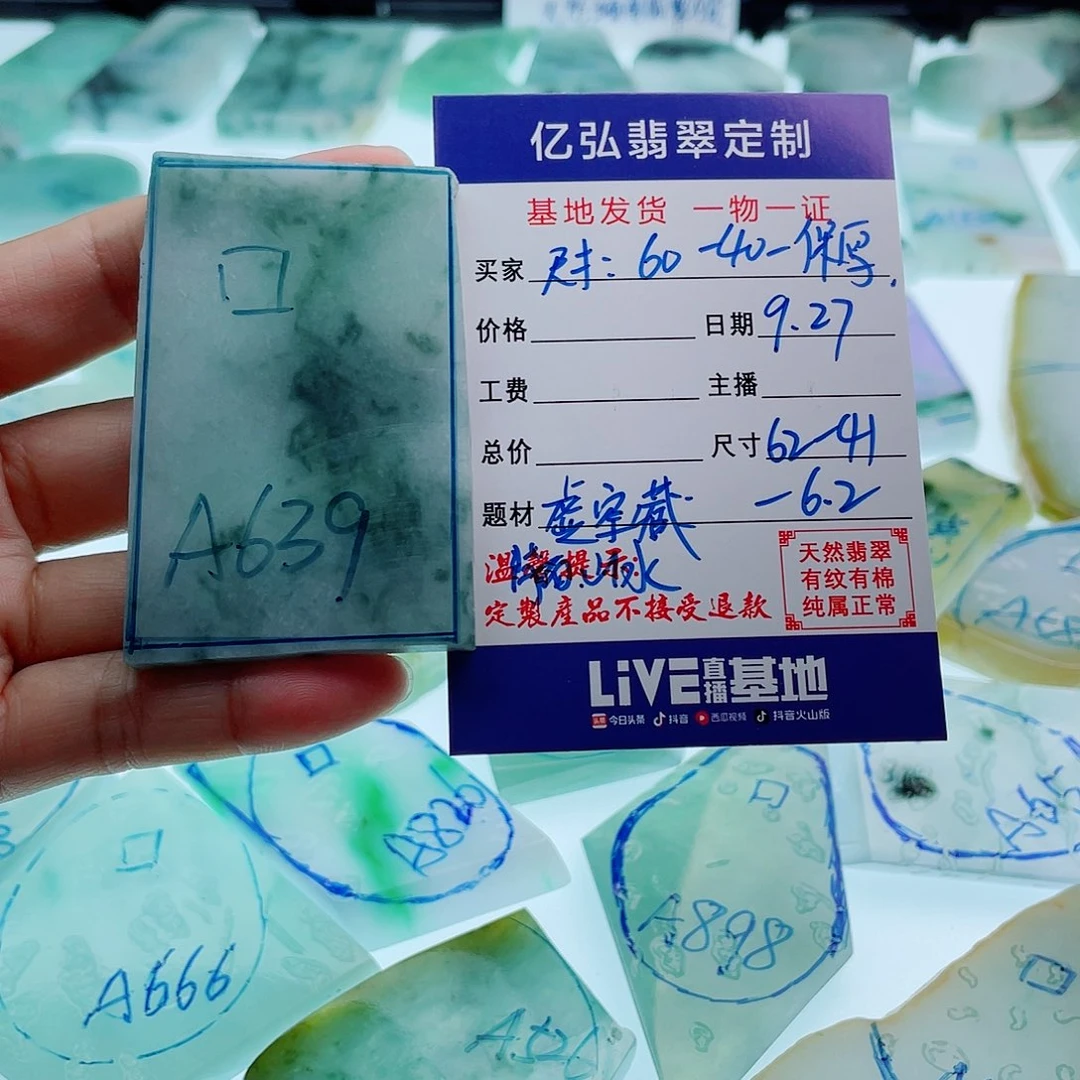 亿弘翡翠定制
基地发货 一物一证
买家 尺寸：60-40-保厚.
价格
日期 9.27
工费
主播
总价
尺寸 62-41
-6.2
题材 虚空藏
温馨提示：
定製産品不接受退款
天然翡翠
有纹有棉
纯属正常
LiVE直播基地
今日头条 抖音 西瓜视频 抖音火山版
口
A639
A820
A666
A898